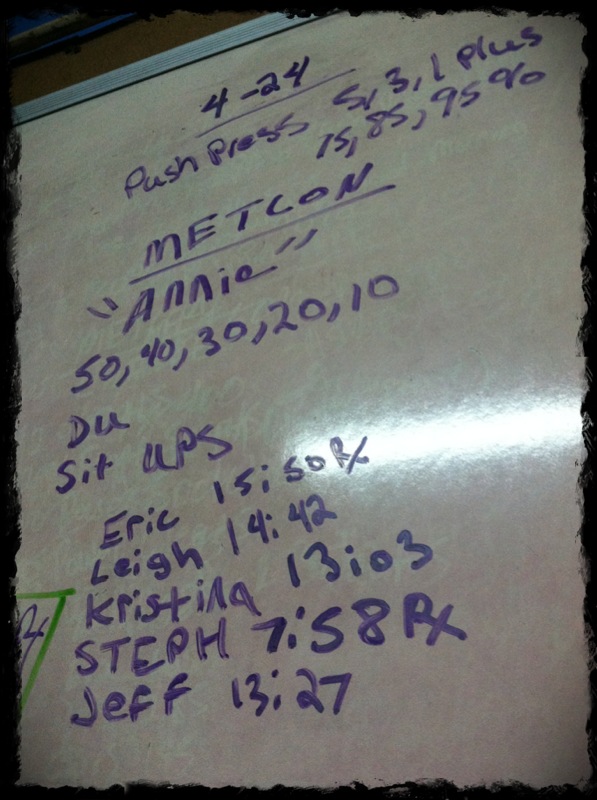 4-24
Push Press 5, 3, 1 plus
75, 85, 95%
METCON
"Annie"
50, 40, 30, 20, 10
Du
Sit UPS
Eric 15:50 Rx
Leigh 14:42
Kristina 13:03
STEPH 7:58 Rx
Jeff 13:27